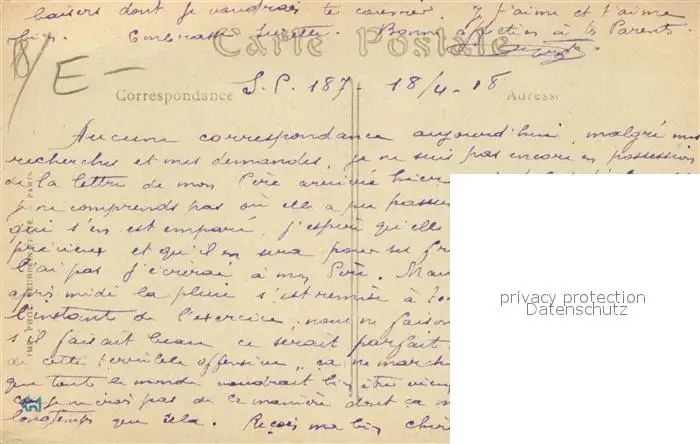 baisers dont je voudrais te couvrir. Je t'aime et t'aime
bien. Embrasse Suzette. Bonne affection à tes Parents.
Carte Postale
E -
Correspondance S.P. 187 - 18/4-18 Adresse
Aucune correspondance aujourd'hui, malgré mes
recherches et mes demandes, je ne suis pas encore en possession
de la lettre de mon Père arrivée hier
je ne comprends pas où elle a pu passer
qui s'en est emparé, j'espère qu'elle
précieux et qu'il en sera pour ses
l'ai pas j'écrirai à mon Père.
après midi la pluie s'est remise à
l'instant de l'exercice, nous ne faisons
s'il faisait beau ce serait parfait
de cette terrible offensive, ça ne marche
que tout le monde voudrait bien être
je ne crois pas de ce manière dont ça
longtemps que cela. Reçois ma bien
privacy protection
Datenschutz
51